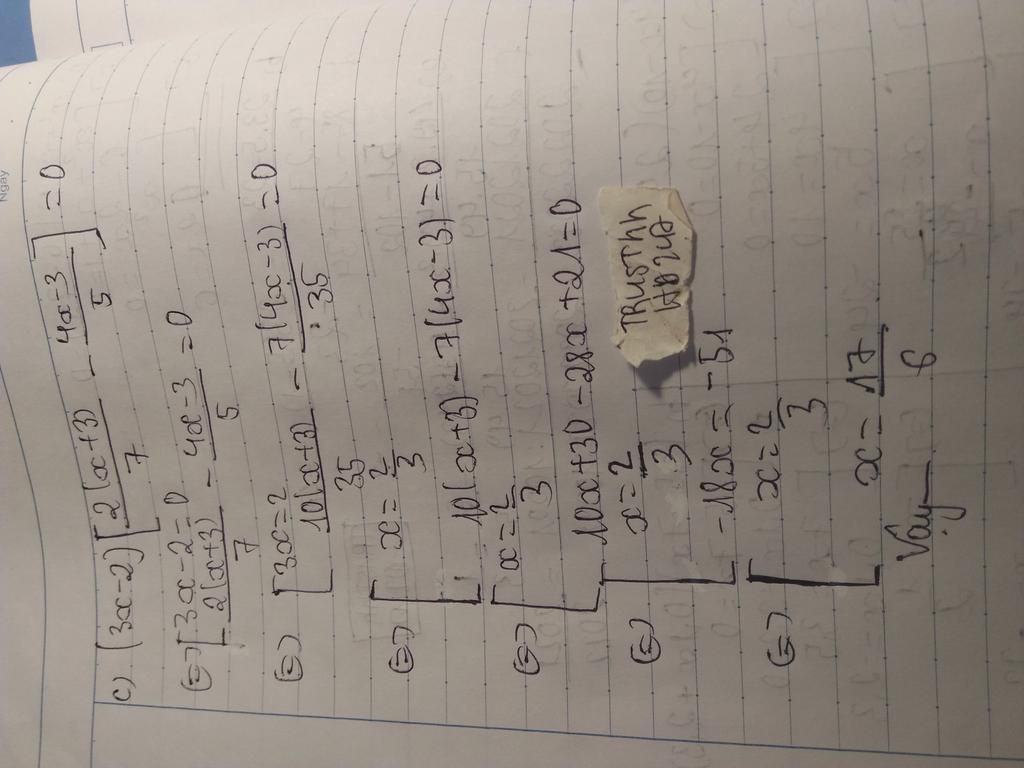 Ngày
c) (3x-2)[2(x+3)/7 - 4x-3/5] = 0
(=) [3x-2=0
2(x+3)/7 - 4x-3/5 = 0
(=) [3x=2
10(x+3)/35 - 7(4x-3)/35 = 0
(=) [x=2/3
10(x+3)-7(4x-3)=0
(=) [x=2/3
10x+30-28x+21=0
(=) [x=2/3
-18x=-51
(=) [x=2/3
x=17/6
Vậy
TRUOTNH